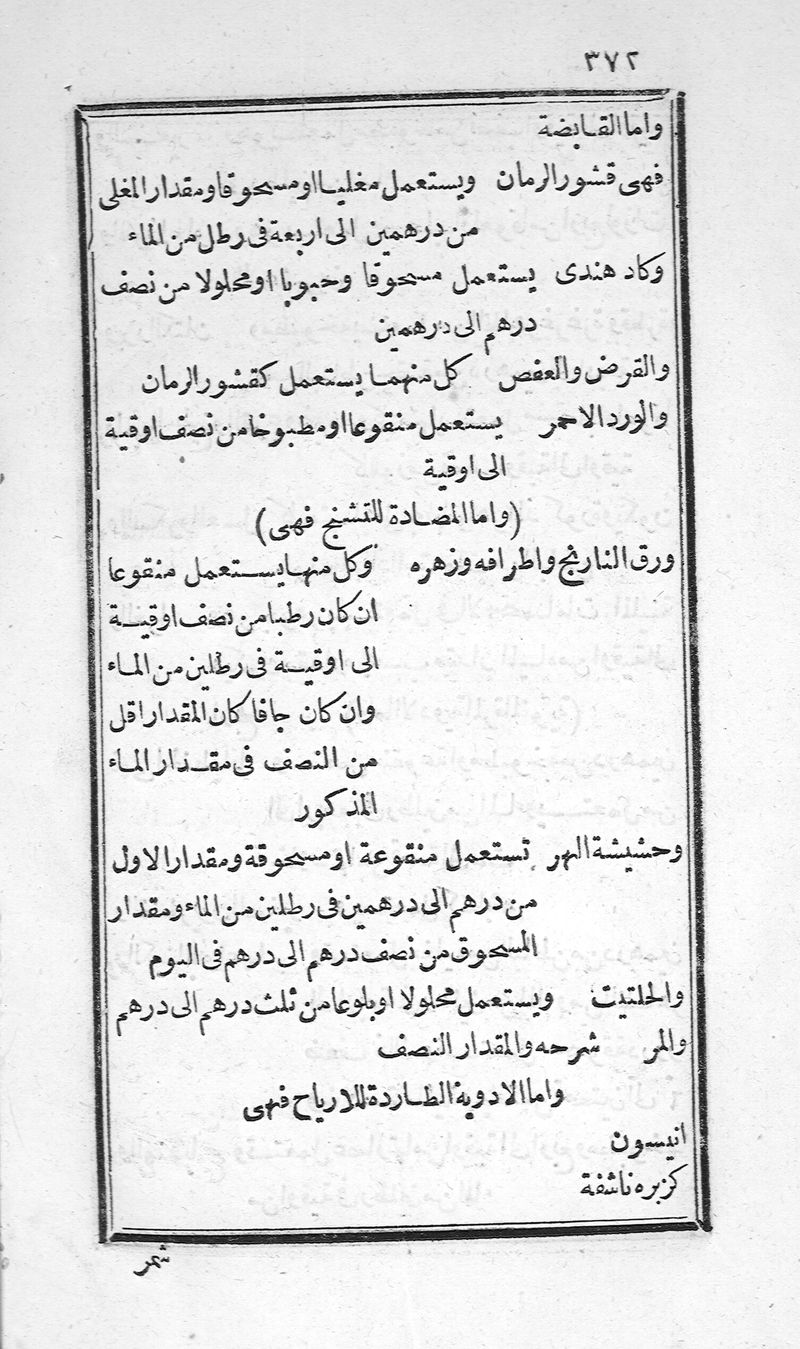 ٣٧٢
واما القابضة
فهى قشور الرمان ويستعمل مغليا او مسحوقا ومقدار المغلى
من درهمين الى اربعة فى رطل من الماء
وكاد هندى يستعمل مسحوقا وحبوبا او محلولا من نصف
درهم الى درهمين
والقرض والعفص كل منهما يستعمل كقشور الرمان
والورد الاحمر يستعمل منقوعا او مطبوخا من نصف اوقية
الى اوقية
(واما المضادة للتشنج فهى)
ورق النارنج واطرافه وزهره وكل منها يستعمل منقوعا
ان كان رطبا من نصف اوقية
الى اوقية فى رطلين من الماء
وان كان جافا كان المقدار اقل
من النصف فى مقدار الماء
المذكور
وحشيشة الهر تستعمل منقوعة او مسحوقة ومقدار الاول
من درهم الى درهمين فى رطلين من الماء ومقدار
المسحوق من نصف درهم الى درهم فى اليوم
والحلتيت ويستعمل محلولا او بلوعا من ثلث درهم الى درهم
والمر شرحه والمقدار النصف
واما الادوية الطاردة للارياح فهى
انيسون
كزبره ناشفة
شمر